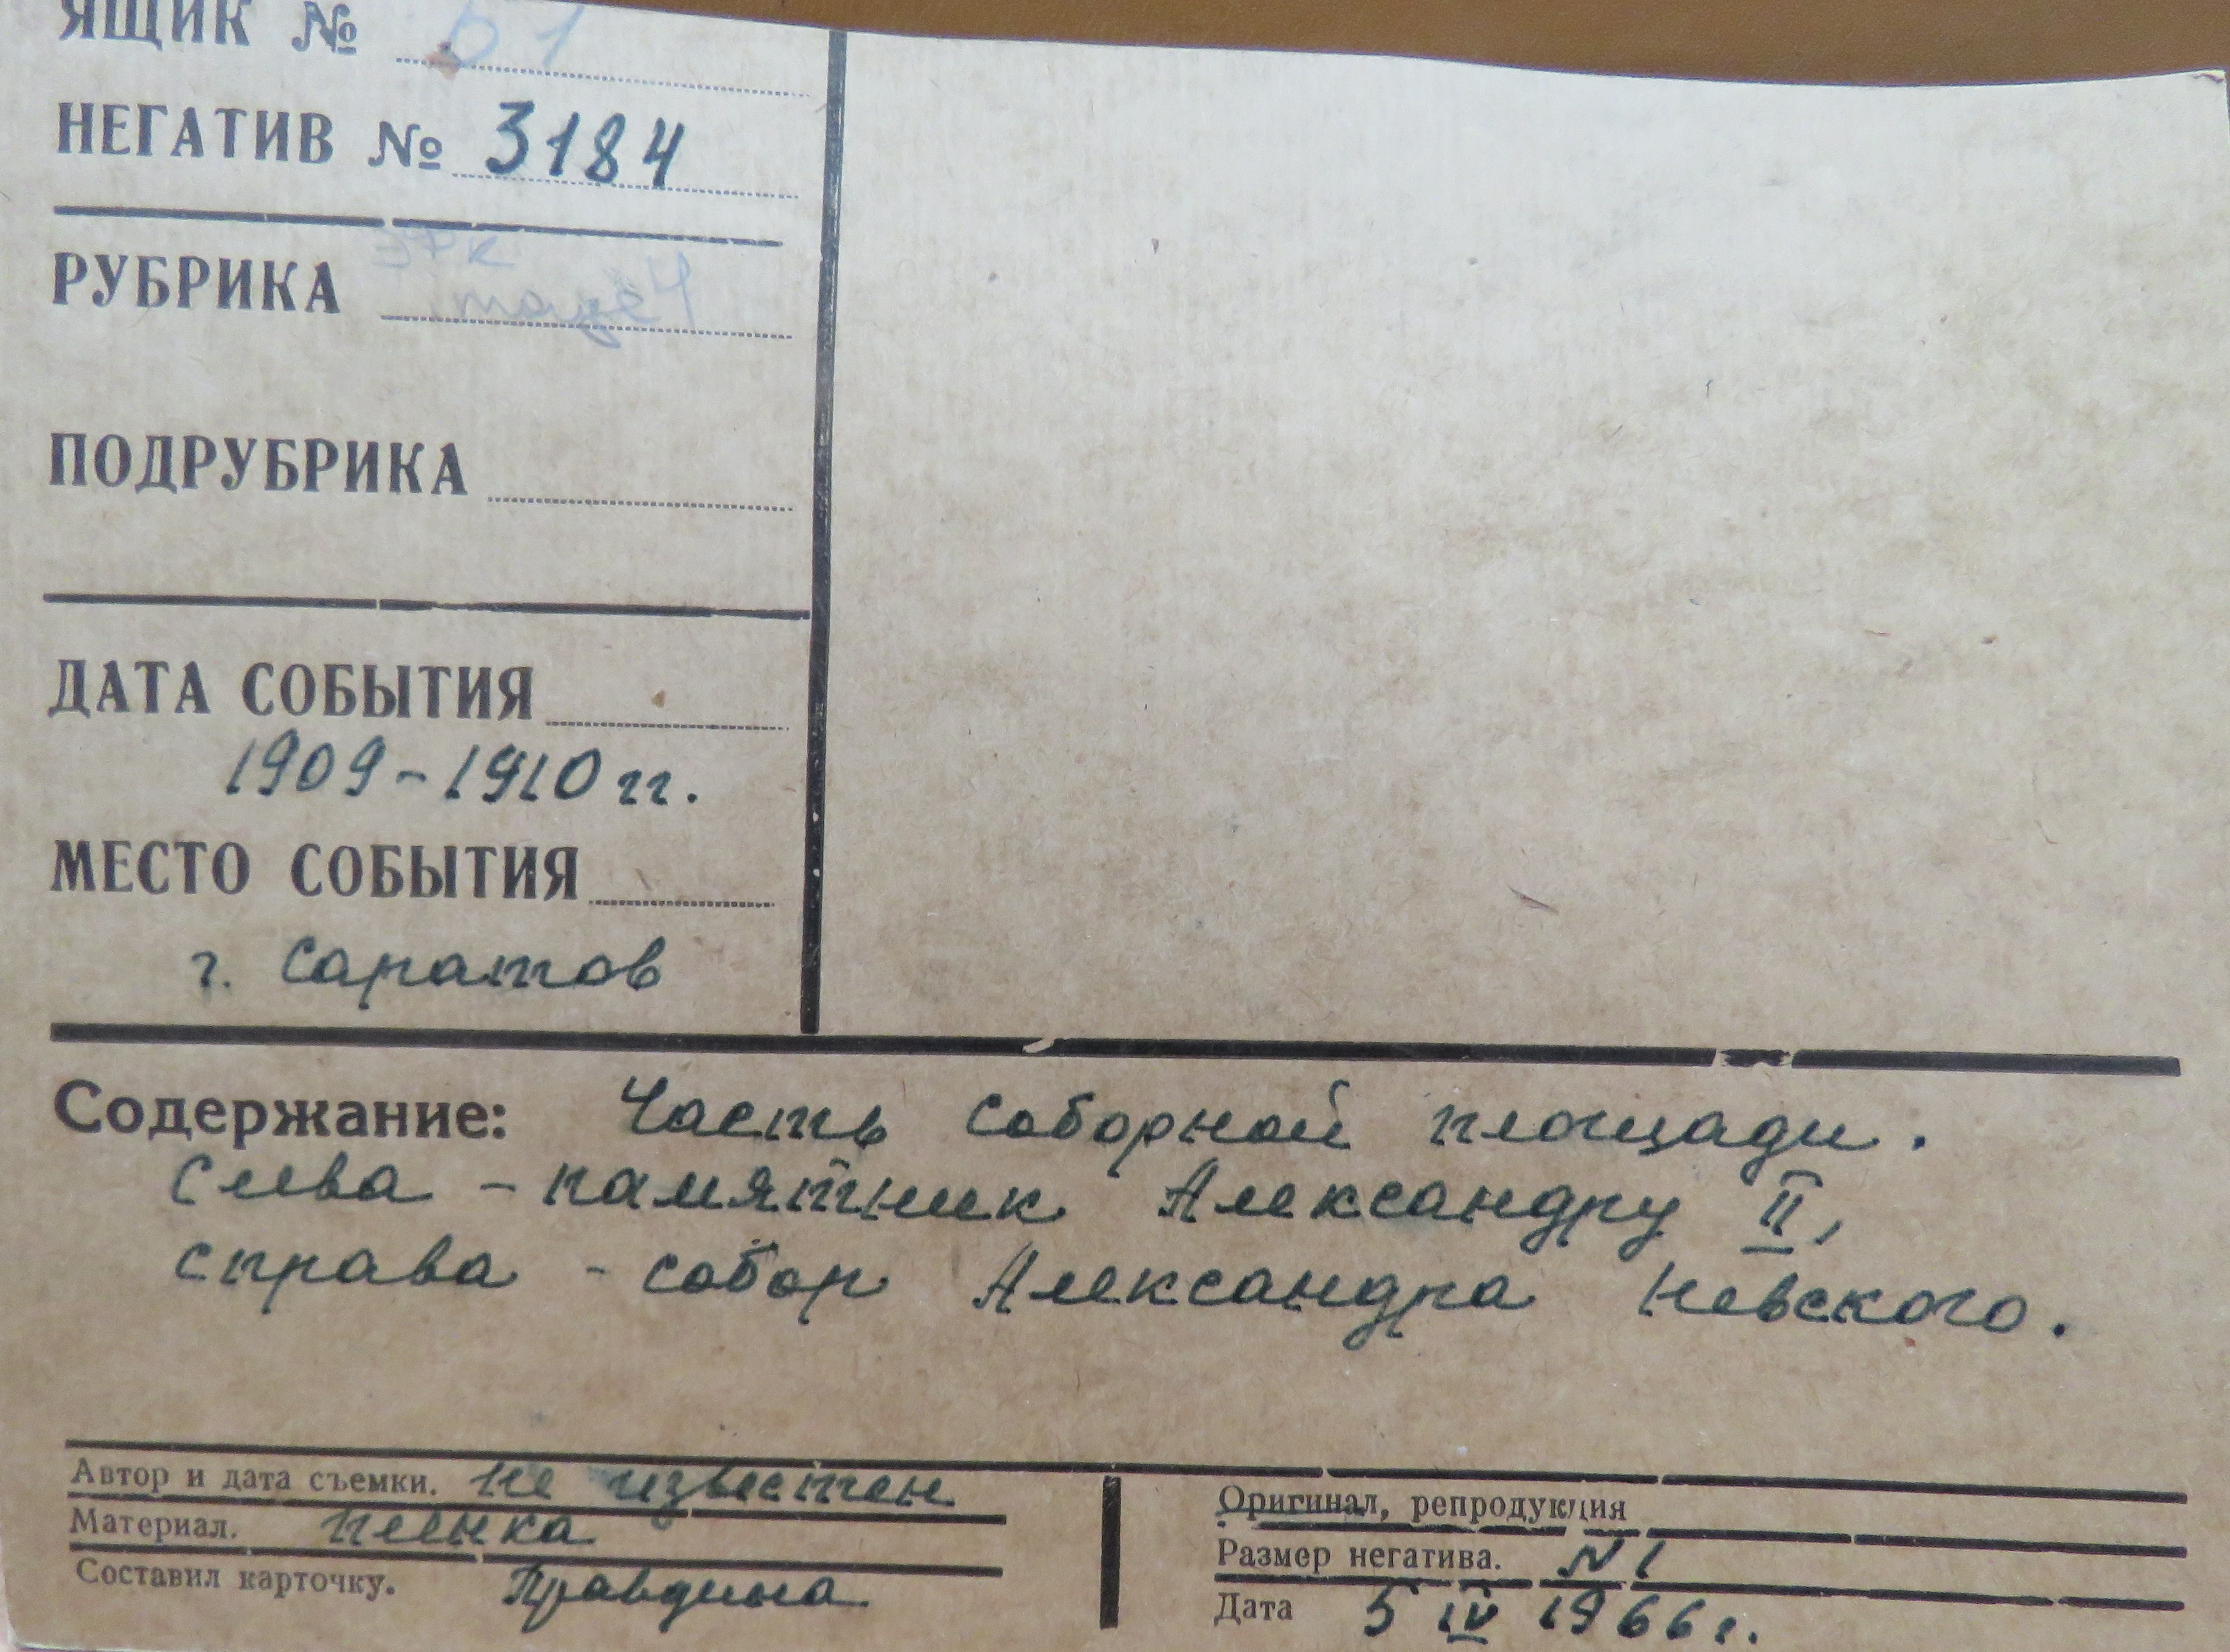 ЯЩИК №
НЕГАТИВ № 3184
РУБРИКА
ПОДРУБРИКА
ДАТА СОБЫТИЯ
1909-1910 гг.
МЕСТО СОБЫТИЯ
г. Саратов
Содержание: Часть Соборной площади.
Слева - памятник Александру II,
справа - собор Александра Невского.
Автор и дата съемки. не известен
Материал. пленка
Составил карточку. Правдина
Оригинал, репродукция
Размер негатива. N 1
Дата 5 IV 1966 г.